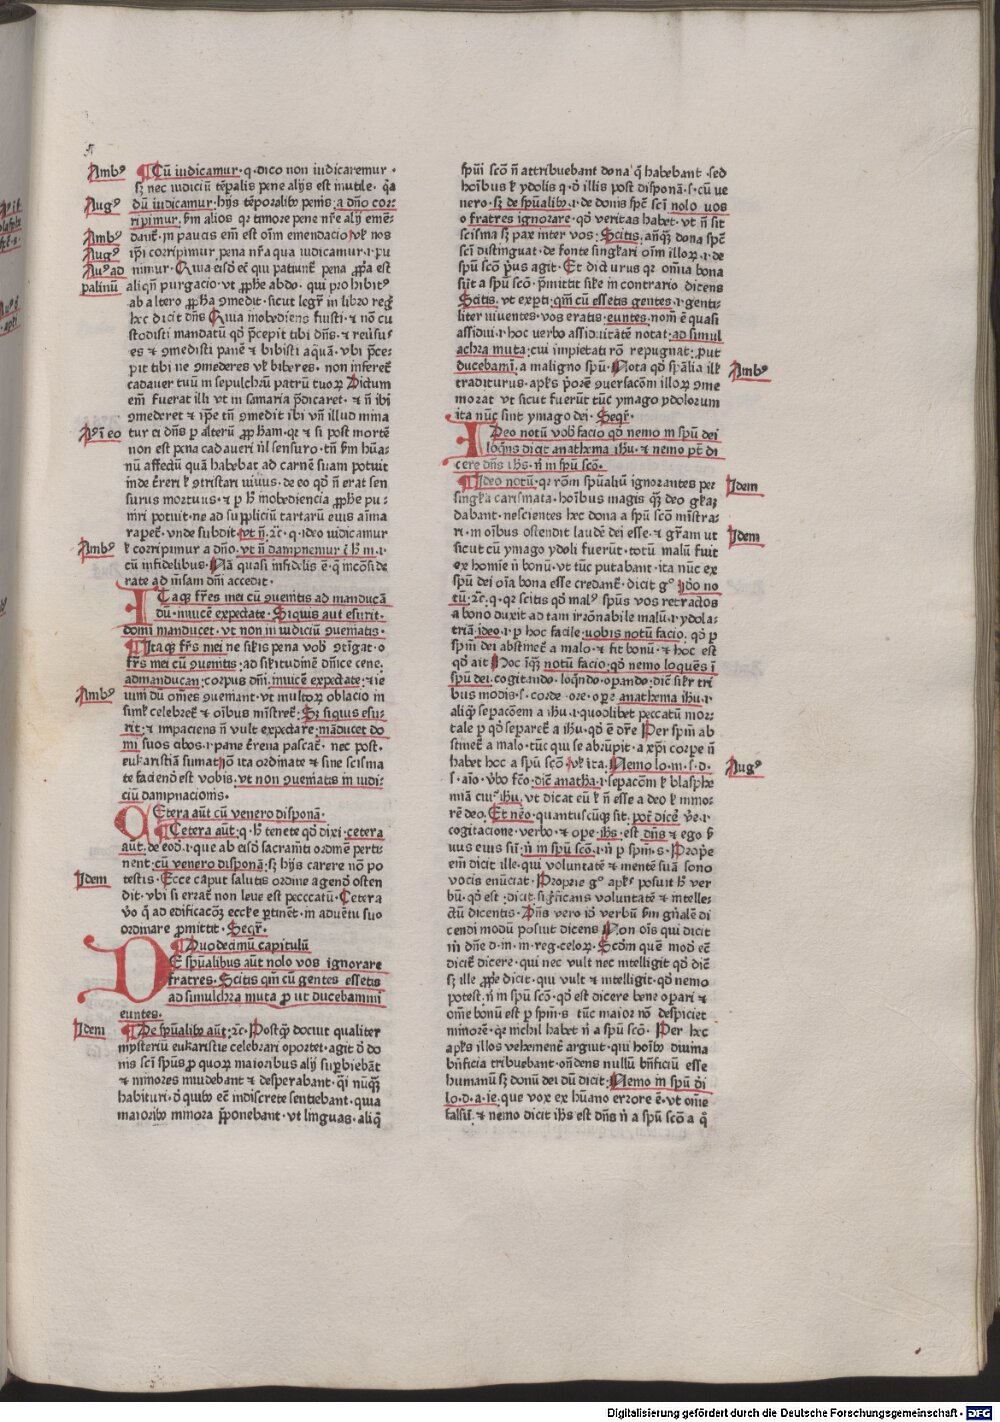 Ambꝰ
Augꝰ
Ambꝰ
Augꝰ
Auꝰ ad
palinū
Aꝰ ī eo
Ambꝰ
Ambꝰ
Idem
Idem
¶ Cū iudicamur· q· dico non iudicaremur·
sꝫ nec iudiciū tēpalis pene alijs est inutile· q̄a
dū iudicamur· hijs tēporalibꝰ penis· a dn̄o cor-
ripimur· ẜm alios qꝛ timore pene nr̄e alij emē-
danť· in paucis em̄ est oīm emendacio ꝉ vꝉ nos
ip̄i corripimur pena nr̄a qua iudicamur· ɪ· pu
nimur· Quia eisdē eē qui patiunť pena ꝓp̄a est
aliqn̄ purgacio· vt ꝓpħe abdo· qui prohibitꝰ
ab altero ꝓpħa ꝯmedit· sicut legiť in libro regꝫ
hec dicit dn̄s Quia inobediens fuisti· ⁊ nō cu
stodisti mandatū qd̓ p̄cepit tibi dn̄s· ⁊ reūsus
es ⁊ ꝯmedisti panē ⁊ bibisti aq̄uā· vbi p̄ce-
pit tibi ne ꝯmederes vꝉ biberes· non infereť
cadauer tuū in sepulchrū patrū tuoꝝ Dictum
em̄ fuerat illi vt in samaria p̄dicaret· ⁊ n̄ ibi
ꝯmederet ⁊ ip̄e tn̄ ꝯmedit ibi vn̄ illud mina
tur ei dn̄s ꝑ alterū ꝓpħam· qꝛ ⁊ si post mortē
non est pena cadaueri nl̄ sensuro· tn̄ ẜm hūa-
nū affectū quā habebat ad carnē suam potuit
inde ťreri ⁊ ꝯtristari viuus· de eo qd̓ n̄ erat sen
surus mortuus· ⁊ ꝑ ħ inobediencia ꝓpħe pu-
niri potuit· ne ad suppliciū tartarū eius aīma
rapeť· vnde subdit· vt n̄· ⁊c̄· q· ideo iudicamur
ꝉ corripimur a dn̄o· vt n̄ dampnemur c̄ ħ m̄· ɪ·
cū infidelibus· Nā quasi infidelis ē· q̄ incōside
rate ad m̄sam dn̄i accedit·
ITaqꝫ fr̄es mei cū ꝯuenitis ad manducā
dū· inuicē expectate· Siquis aut̄ esurit·
domi manducet· vt non in iudiciū ꝯueniatis·
¶ Itaqꝫ fr̄es mei ne sil̓is pena vob̓ ꝯtīgat· o
fr̄es mei cū ꝯuenitis· ad sil̓itudinē dn̄ice cene·
ad manducan̄· corpus dn̄i· inuicē expectate· ɪ· ie
iunī dū om̄es ꝯueniant· vt multoꝝ oblacio in
simꝉ celebreť ⁊ oībus m̄streť· Sꝫ siquis esu-
rit· ⁊ impaciens n̄ vult expectare· manducet do
mi suos cibos· ɪ· pane ťrena pascať· nec post·
eukaristiā sumat ɪo ita ordinate ⁊ sine scisma
te faciendū est vobis· vt non ꝯueniatis in iudi-
ciū dampnacionis·
CEtera aūt cū venero disponā·
¶ Cetera aūt· q· ħ tenete qd̓ dixi· cetera
aūt· de eod̓· ɪ· que ab eisdē sacram̄ti ordinē perti-
nent· cū venero disponā· sꝫ hijs carere nō po
testis· Ecce caput salutis ordine agendū osten
dit· vbi si erraťnon leue est peccatū· Cetera
v̓o q̄ ad edificacōꝫ eccꝉe ꝑtinēt· in aduētu suo
ordinare ꝓmittit· Seqť·
¶ Duodecimū capitulū
DE spūalibus aūt nolo vos ignorare
fratres· Scitis qm̄ cū gentes essetis
ad simulchra muta ꝓ ut ducebamini
euntes·
¶ De spūalibꝰ aūt· ⁊c̄· Postq̄ꝫ docuit qualiter
mysteriū eukaristie celebrari oportet· agit d̓ do
nis sc̄i spūs ꝓ quoꝝ maioribus alij suꝑbiebāt
⁊ minores inuidebant ⁊ desperabant· q̄i nūq̄ꝫ
habituri· d̓ quibꝰ eē indiscrete sentiebant· quia
maioribꝰ minora p̄ponebant· vt linguas· aliq̄
spūi sc̄o n̄ attribuebant dona q̄ habebant· sed
hoībus ꝉ ydolis q· d̓ illis post disponā· s· cū ve
nero· sꝫ de spūalibꝰ· ɪ· de donis spūs sc̄i nolo uos
o fratres ignorare· qd̓ veritas habet· vt n̄ sit
scisma sꝫ pax inter vos· Scitis· an̄q̄ꝫ dona spūs
sc̄i distinguat· de fonte singꝉari oīm illoꝝ· ɪ· de
spū sc̄o p̄us agit· Et dicturus qꝛ oīnia bona
sūt a spū sc̄o· p̄mittit siꝉe in contrario dicens
Scitis· vt exꝑti· qm̄ cū essetis gentes· ɪ· genti-
liter viuentes· vos eratis· euntes· nom̄ ē quasi
assidui· ɪ· hoc verbo assiduitatē notat· ad simul
achra muta· cui impietati rō repugnat· ꝓut
ducebamī· a maligno spū· Nota qd̓ sp̄alia ille
traditurus· aptꝰs p̓orē ꝯuersacōm illoꝝ ꝯme
morat vt sicut fuerūt tūc ymago ydolorum
ita nūc sint ymago dei· Seqť·
IDeo notū vob̓ facio qd̓ nemo in spū dei
loq̄ns dicit anathema iħu· ⁊ nemo pōt di
cere dn̄s iħs· n̄ in spū sc̄o·
¶ Ideo notū· qꝛ rōm spūaliū ignorantes per
singꝉa carismata· hoībus magis q̄ꝫ deo gꝉiaꝫ
dabant· nescientes hec dona a spū sc̄o mīstra-
ri· in oībus ostendit laudē dei esse· ⁊ gr̄am ut
sicut cū ymago ydoli fuerūt· totū malū fuit
ex homīe n̄ bonū· vt tūc putabant· ita nūc ex
spū dei oīa bona esse credanť· dicit gꝰ Ido no
tū· ⁊c̄· q· qꝛ scitis qd̓ malꝰ spūs vos retractos
a bono duxit ad tam irrōnabile malū· ɪ· ydola-
triā ideo· ɪ· ꝑ hoc facile· uobis notū facio· qd̓ ꝑ
spm̄ dei abstineť a malo· ⁊ fit bonū· ⁊ hoc est
qd̓ ait Hoc īqꝫ notū facio· qd̓ nemo loquēs ī
spū dei· cogitando· loq̄ndo· oꝑando· dicē siꝉr tri
bus modis· s· corde· ore· oꝑe anathema iħu· ɪ·
aliq̄ separacōem a iħu· ɪ· quodlibet peccatū mor-
tale ꝑ qd̓ separeť a iħu· qd̓ ē dr̄e Per spm̄ ab
stineť a malo· tūc qui se abrūpit· a xp̄i corpe n̄
habet hoc a spū sc̄o· vꝉ ita· Nemo lo· in· s· d·
s· aīo· v̓bo fc̄o· dicē anatha· ɪ· sepacōm ꝉ blasphe
miā cuiꝰ iħu· vt dicat eū ꝉ n̄ esse a deo ꝉ mino-
rē deo· Et neō· quantuscūqꝫ sit· pot̄ dicē v̓e· ɪ·
cogitacione· verbo· ⁊ oꝑe· iħs· est dn̄s ⁊ ego ẜ
uus eius sū· n̄ in spū sc̄o· ɪ· n̄ ꝑ spm̄· s· Prop̄e
em̄ dicit ille· qui voluntatē ⁊ mentē suā sono
vocis enūciat· Proprie gꝰ aptꝰs posuit ħ ver
bū· qd̓ est· dicit· sigīficans voluntatē ⁊ intelle-
ctū dicentis· Dn̄s vero iō verbū ẜm gn̄alē di
cendi modū posuit dicens Non oīs qui dicit
m̄ dn̄e d· in· in· reg· celoꝝ· Sc̄dm quē modū eē
dicit dicere· qui nec vult nec intelligit qd̓ dicit
sꝫ ille ꝓpe dicit· qui vult ⁊ intelligit· qd̓ nemo
potest· n̄ in spū sc̄o· qd̓ est dicere bene oꝑari ⁊
om̄e bonū est ꝑ spm̄· s· tūc maior nō despiciet
minorē· qꝛ nichil habet n̄ a spū sc̄o· Per hec
aptꝰs illos vehemenť arguit· qui hoībꝰ diuina
bn̄ficia tribuebant· on̄dens nullū bn̄ficiū esse
humanū sꝫ donū dei dū dicit· Nemo in spū d̓i
lo· d· a· ie· que vox ex hūano errore ē· vt om̄e
falsū· ⁊ nemo dicit iħs est dn̄s n̄ a spū sc̄o a q̄
Ambꝰ
Idem
Idem
Augꝰ
Digitalisierung gefördert durch die Deutsche Forschungsgemeinschaft - DFG